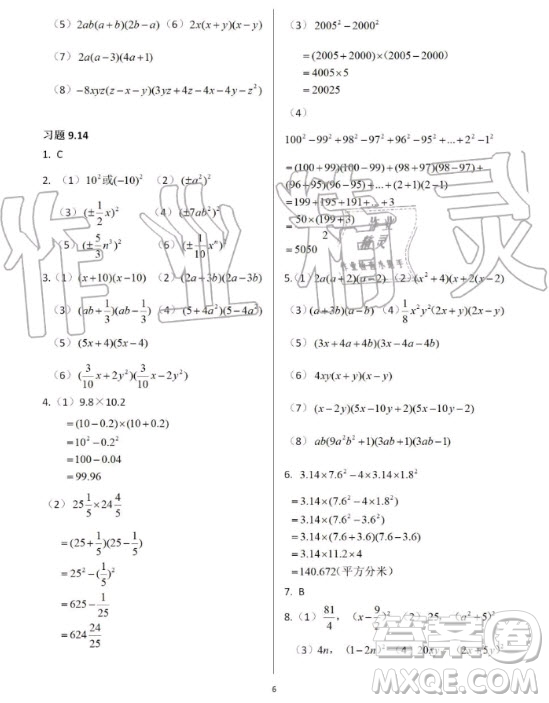 （5）2ab(a+b)(2b−a)（6）2x(x+y)(x−y)
（7）2a(a−3)(4a+1)
（8）−8xyz(z−x−y)(3yz+4z−4x−4y−z²)
习题 9.14
1. C
2.（1）10²或(−10)²（2）(±a²)²
（3）(±1/2x)²（4）(±7ab²)²
（5）(±5/3n³)²（6）(±1/10xⁿ)²
3.（1）(x+10)(x−10)（2）(2a+3b)(2a−3b)
（3）(ab+1/3)(ab−1/3)（4）(5+4a²)(5−4a²)
（5）(5x+4)(5x−4)
（6）(3/10x+2y²)(3/10x−2y²)
4.（1）9.8×10.2
=(10−0.2)×(10+0.2)
=10²−0.2²
=100−0.04
=99.96
（2）25 1/5×24 4/5
=(25+1/5)(25−1/5)
=25²−(1/5)²
=625−1/25
=624 24/25
（3）2005²−2000²
=(2005+2000)×(2005−2000)
=4005×5
=20025
（4）
100²−99²+98²−97²+96²−95²+...+2²−1²
=(100+99)(100−99)+(98+97)(98−97)+
(96+95)(96−95)+...+(2+1)(2−1)
=199+195+191+...+3
=50×(199+3)/2
=5050
5.（1）2a(a+2)(a−2)（2）(x²+4)(x+2)(x−2)
（3）(a+3b)(a−b)（4）1/8x²y²(2x+y)(2x−y)
（5）(3x+4a+4b)(3x−4a−4b)
（6）4xy(x+y)(x−y)
（7）(x−2y)(5x−10y+2)(5x−10y−2)
（8）ab(9a²b²+1)(3ab+1)(3ab−1)
6. 3.14×7.6²−4×3.14×1.8²
=3.14×(7.6²−4×1.8²)
=3.14×(7.6²−3.6²)
=3.14×(7.6+3.6)(7.6−3.6)
=3.14×11.2×4
=140.672(平方分米)
7. B
8.（1）81/4，(x−9/2)²（2）25，(a²+5)²
（3）4n，(1−2n)²（4）20xy，(2x+5y)²
6
作业精灵
答案圈
MXQE.COM